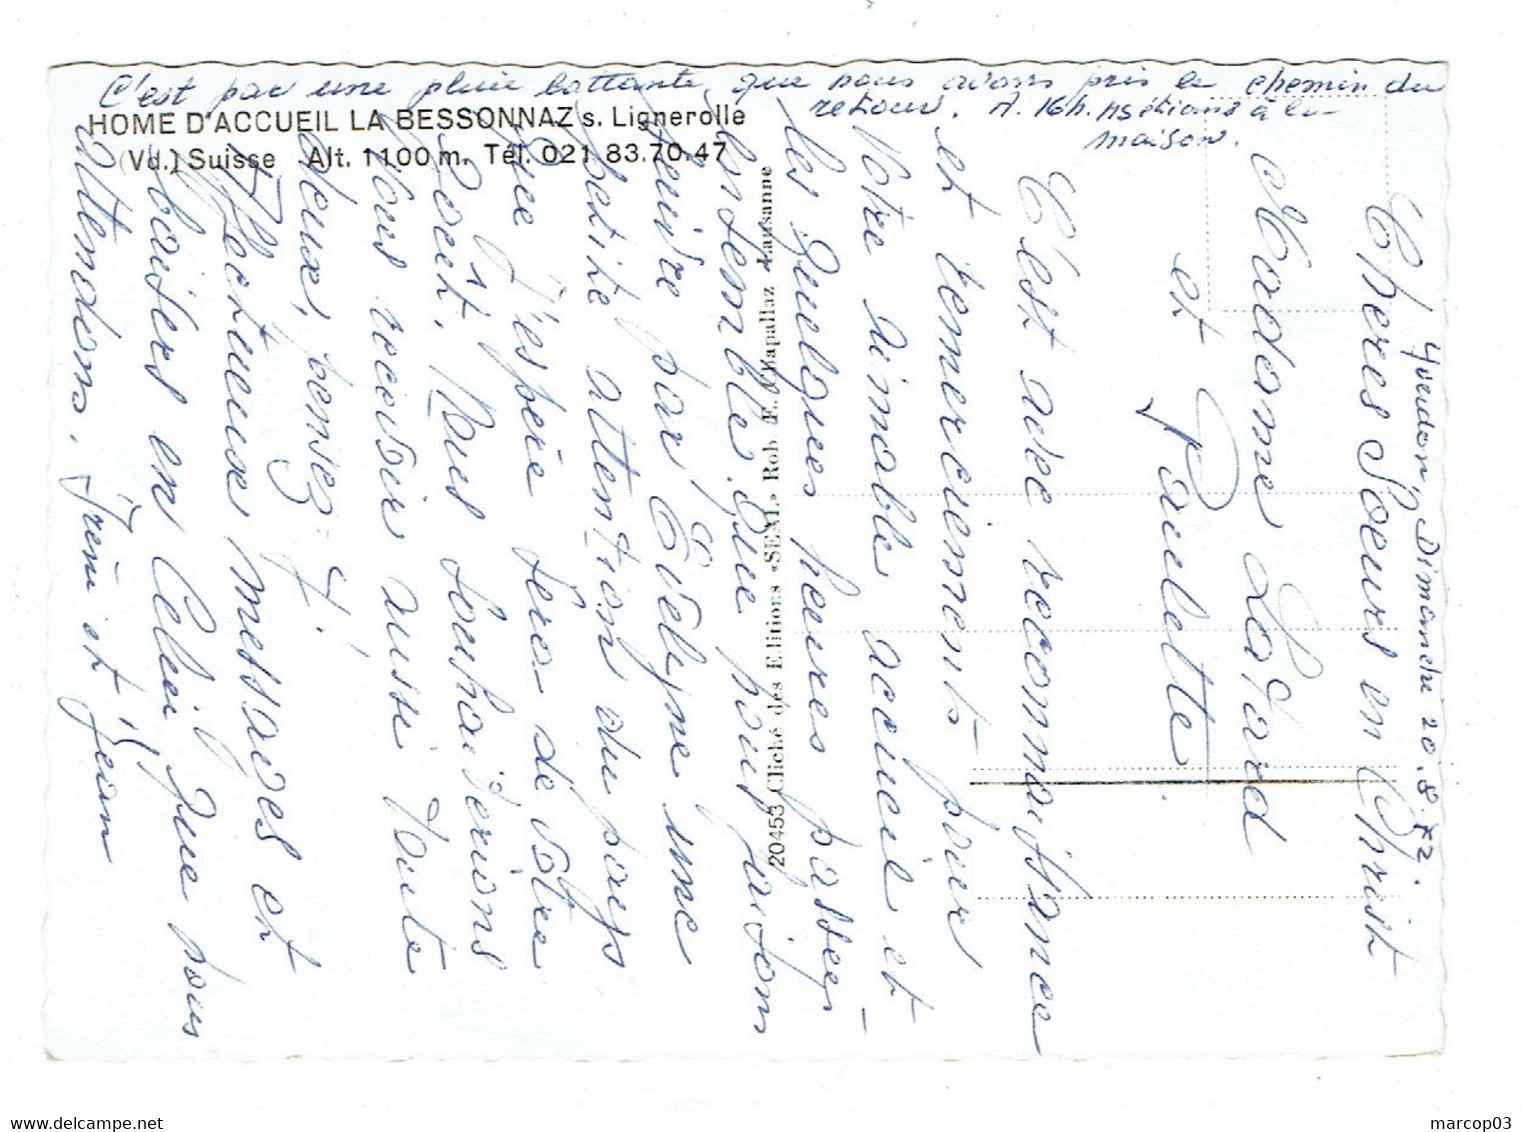 C'est par une pluie battante que nous avons pris le chemin du
retour. A 16h. ns étions à la
maison.
HOME D'ACCUEIL LA BESSONNAZ s. Lignerolle
(Vd.) Suisse Alt. 1100 m. Tél. 021 83.70.47
20453 Cliché des Editions «SEAL» Rob. E. Chapallaz Lausanne
Yverdon, Dimanche 20.8.72.
Chères Soeurs en Christ
Madame
et Paulette.
C'est avec reconnaissance
et remerciements pour
votre aimable accueil et
les quelques heures passées
ensemble que nous faisons
suivre par Evelyne une
petite attention du pays
que j'espère sera de votre
goût. Nous souhaiterions
vous recevoir aussi toute
deux, pensez-y.
Affectueux messages et
baisers en Celui que nous
attendons. Irène et Jean
marcop03